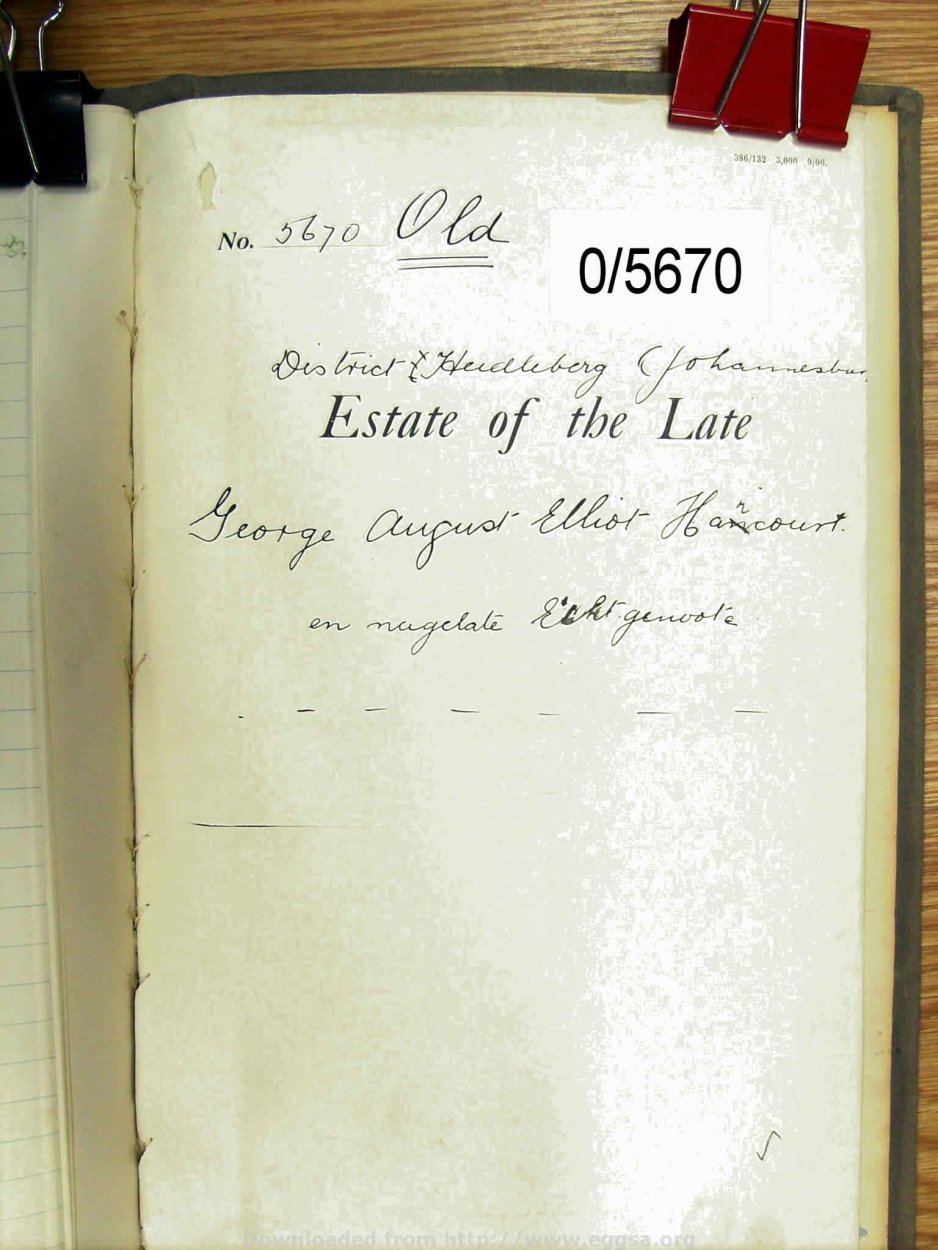 386/132 3,000 9/06.
No. 5670 Old
0/5670
District Heidleberg (Johannesbur
Estate of the Late
George August Elliot Harcourt.
en nagelate Echtgenoote
Downloaded from http://www.eggsa.org